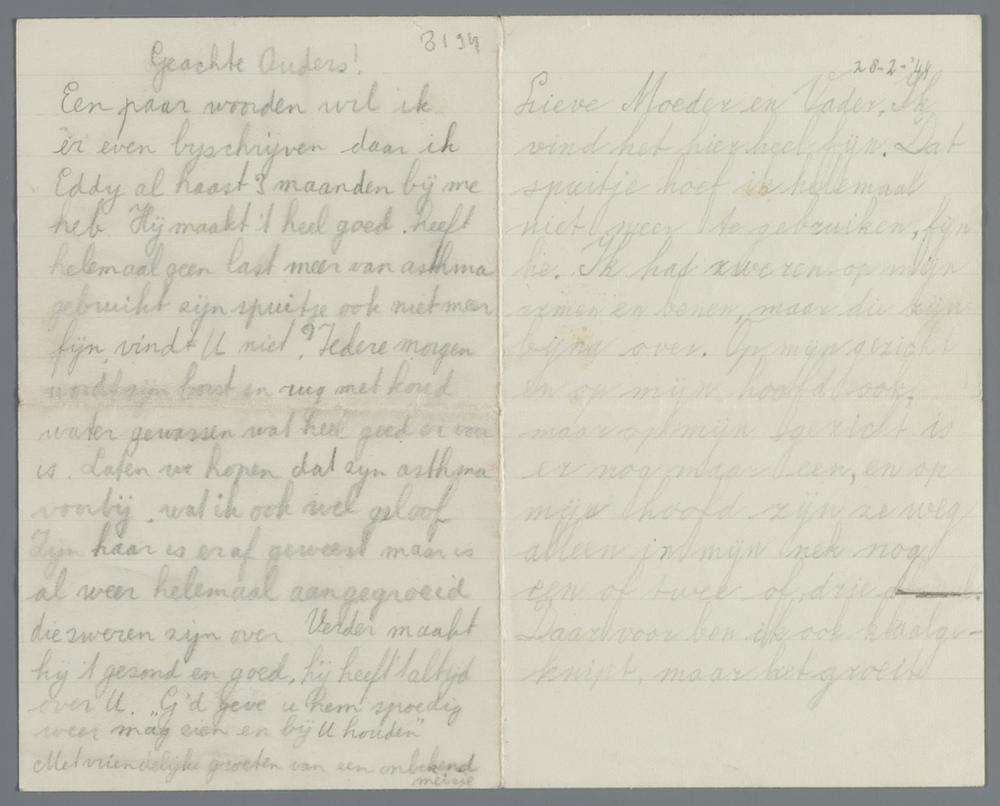 8194
Geachte Ouders!
Een paar woorden wil ik
er even byschrijven daar ik
Eddy al haast 3 maanden bij me
heb. Hij maakt 't heel goed. heeft
helemaal geen last meer van asthma
gebruikt zijn spuitje ook niet meer
fijn, vindt U niet? Iedere morgen
wordt zijn borst en rug met koud
water gewassen wat heel goed er voor
is. Laten we hopen dat zyn asthma
voorbij. wat ik ook wel geloof
Zijn haar is eraf geweest maar is
al weer helemaal aangegroeid
die zweren zyn over Verder maakt
hij 't gezond en goed, hij heeft 't altyd
over U. „G'd geve u hem spoedig
weer mag zien en bij U houden"
Met vriendelijke groeten van een onbekend
meisje
28-2-'44
Lieve Moeder en Vader. Ik
vind het hier heel fijn. Dat
spuitje hoef ik helemaal
niet meer te gebruiken, fijn
he. Ik had zweren op mijn
armen en benen, maar die zijn
bijna over. Op mijn gezicht
en op mijn hoofd ook.
maar op mijn gezicht is
er nog maar een, en op
mijn hoofd zijn ze weg
alleen in mijn nek nog
een of twee of drie
Daarvoor ben ik ook kaalge-
knipt, maar het groeit